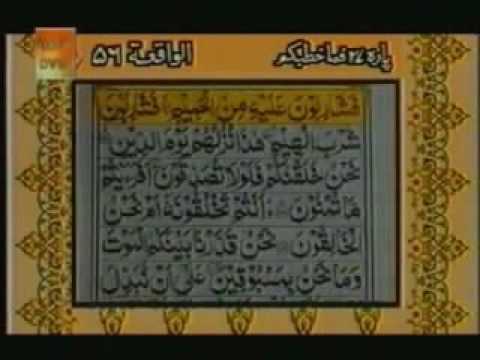 الواقعة ٥٦
پارہ ٢٧ قال فما خطبكم
فَشَارِبُونَ عَلَيْهِ مِنَ الْحَمِيمِ فَشَارِبُونَ
شُرْبَ الْهِيمِ هَذَا نُزُلُهُمْ يَوْمَ الدِّينِ
نَحْنُ خَلَقْنَاكُمْ فَلَوْلَا تُصَدِّقُونَ أَفَرَءَيْتُمْ
مَا تُمْنُونَ ءَأَنْتُمْ تَخْلُقُونَهُ أَمْ نَحْنُ
الْخَالِقُونَ نَحْنُ قَدَّرْنَا بَيْنَكُمُ الْمَوْتَ
وَمَا نَحْنُ بِمَسْبُوقِينَ عَلَى أَنْ نُبَدِّلَ